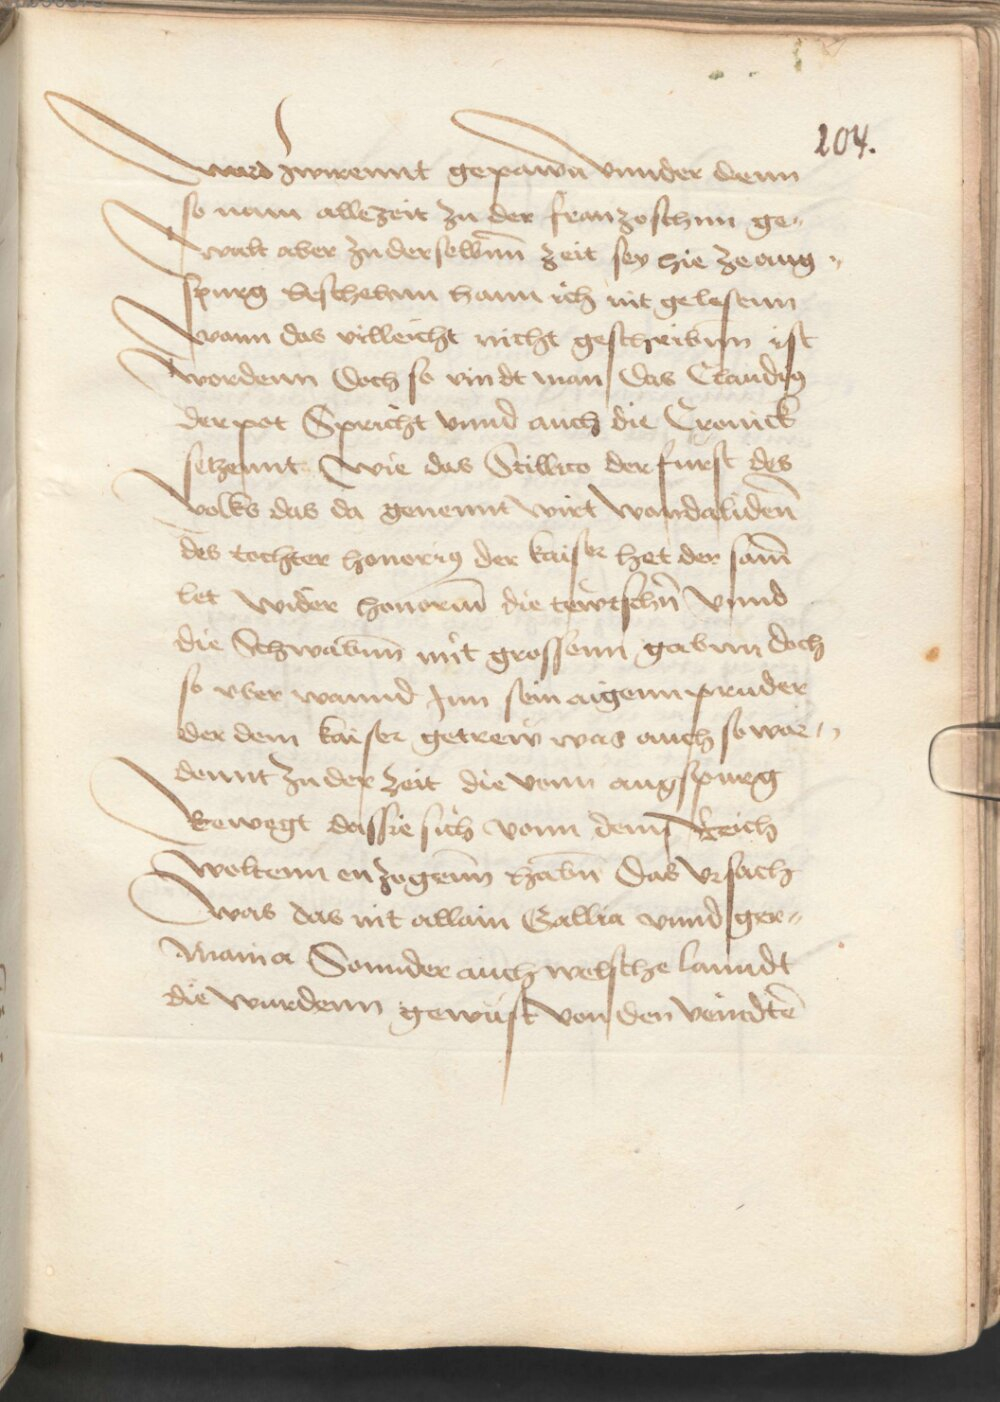 104.
ward zwirennt gepawn vnnder denn
so nam allezeit zu der franzoschnn ge„
walt aber zu derselbnn zeit sey hie ze aug„
spurg beschehnn hann ich nit gelesenn
wann das villeicht nicht geschribnn ist
wordenn Doch so vindt man das Claudi9
der pot Spricht vnnd auch die Cronick
setzennt Wie das Stillico der furst des
volks das da genennt wirt wandalidenn
des tochter honori9 der kaiser het der sam
let wider honorium die tewtschn vnnd
die Schwabnn mit grossenn gabnn doch
so vber wannd Inn sein aigenn pruder
der dem kaiser getrew was auch so war„
dennt zu der zeit die vonn augspurg
bewegt das sie sich vonn dem Reich
woltenn enzogenn habn Das vrsach
was das nit allain Gallia vnnd ger„
mania Sonnder auch welsche lanndt
die wurdenn gewüst von den veindte